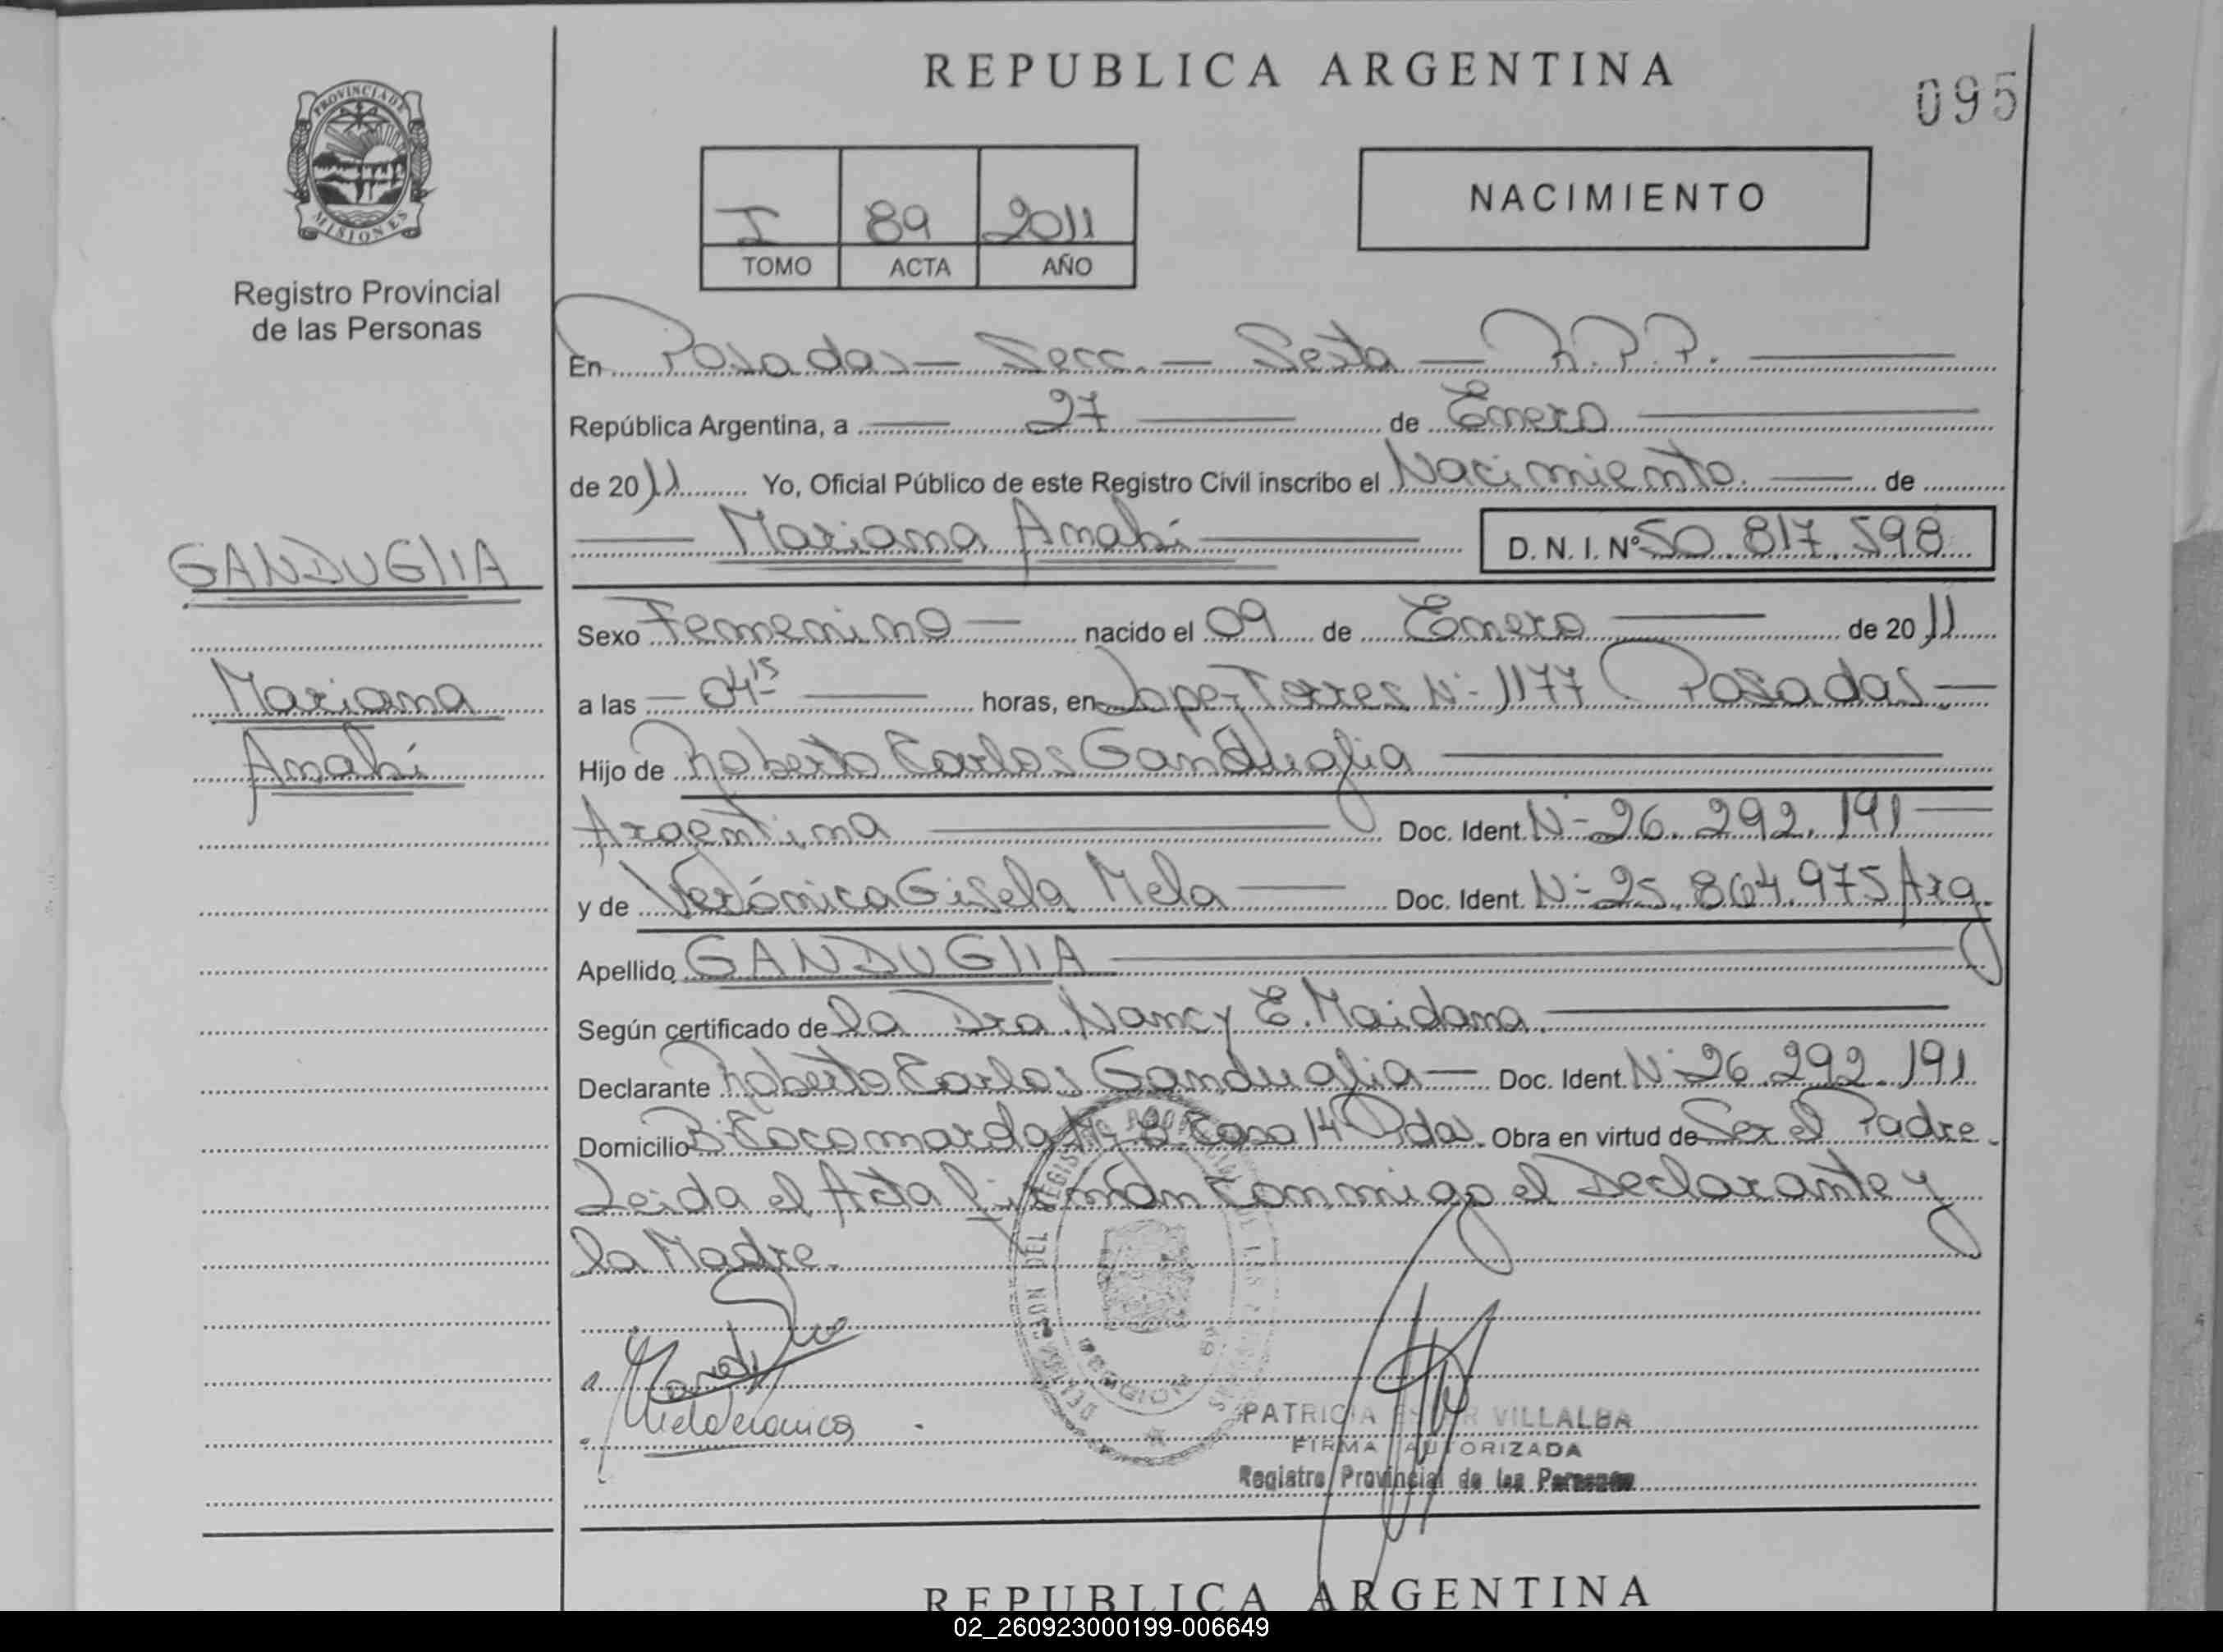 REPUBLICA ARGENTINA
095
PROVINCIA DE
MISIONES
Registro Provincial
de las Personas
I 89 2011
TOMO ACTA AÑO
NACIMIENTO
En Posadas - Secc. - Sexta - R.P.P.
República Argentina, a 27 de Enero
de 2011 Yo, Oficial Público de este Registro Civil inscribo el Nacimiento. de
Mariana Anahí D. N. I. Nº 50.817.598
GANDUGLIA
Mariana
Anahí
Sexo Femenino nacido el 09 de Enero de 2011
a las 04 15 horas, en Lopez Torres Nº 1177 Posadas
Hijo de Roberto Carlos Ganduglia
Argentina Doc. Ident. Nº 26.292.191
y de Verónica Gisela Mela Doc. Ident. Nº 25.864.975 Arg.
Apellido GANDUGLIA
Según certificado de la Dra Nancy E. Maidana.
Declarante Roberto Carlos Ganduglia Doc. Ident. Nº 26.292.191
Domicilio Casa 14 Pdas. Obra en virtud de Ser el Padre.
Leida el Acta firman Conmigo el Declarante y
la Madre.
Mela Veronica
PATRICIA VILLALBA
FIRMA AUTORIZADA
Registro Provincial de las Personas
REPUBLICA ARGENTINA
02_260923000199-006649